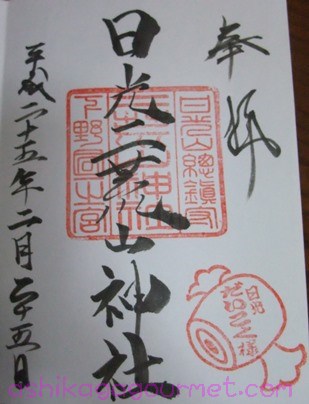 奉拝
日光二荒山神社
日光山總鎮守
下野國一宮
平成二十五年二月二十五日
日光
だいこく様
ashikagagourmet.com